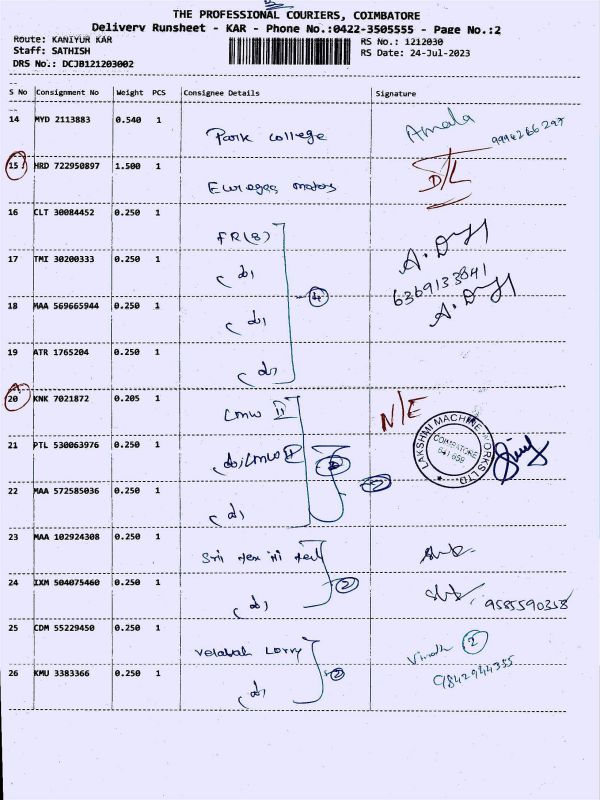 THE PROFESSIONAL COURIERS, COIMBATORE
Delivery Runsheet - KAR - Phone No.:0422-3505555 - Page No.:2
Route: KANIYUR KAR
RS No.: 1212030
Staff: SATHISH
RS Date: 24-Jul-2023
DRS No.: DCJB121203002
S No Consignment No Weight PCS Consignee Details Signature
14 MYD 2113883 0.540 1
Park college
Amala
9994266297
15 HRD 722950897 1.500 1
motors
D/L
16 CLT 30084452 0.250 1
FR(B)
17 TMI 30200333 0.250 1
6369133841
18 MAA 569665944 0.250 1
4
19 ATR 1765204 0.250 1
20 KNK 7021872 0.205 1
Lmw II
N/E
21 PTL 530063976 0.250 1
Lmw
LAKSHMI MACHINE WORKS LTD.
COIMBATORE
641 659
22 MAA 572585036 0.250 1
23 MAA 102924308 0.250 1
24 IXM 504075460 0.250 1
2
9585590358
25 CDM 55229450 0.250 1
Lorry
2
26 KMU 3383366 0.250 1
2
9842944355